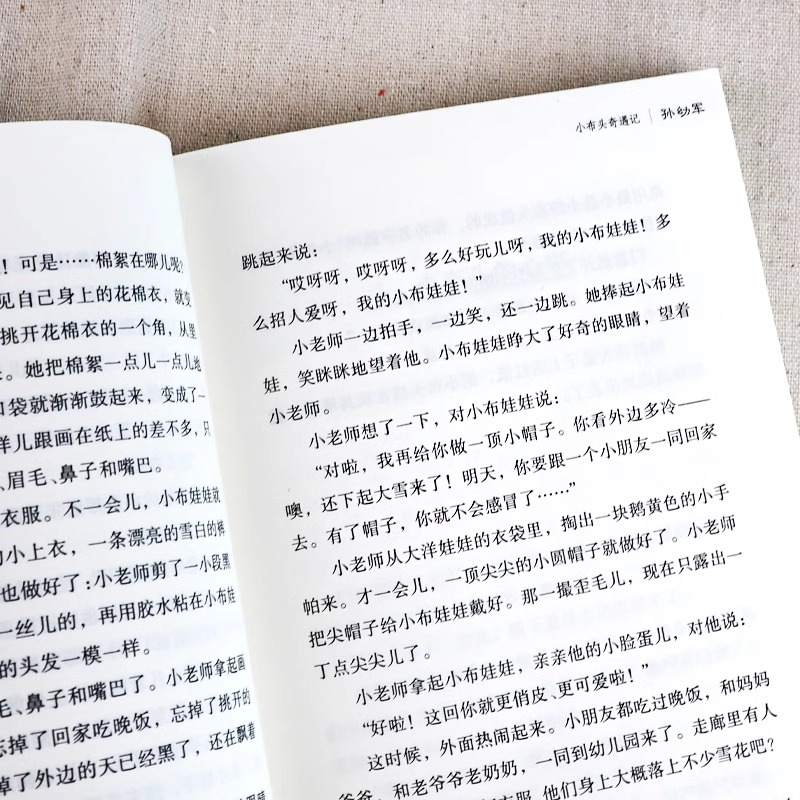 ！可是……棉絮在哪儿呢？
见自己身上的花棉衣，就变
挑开花棉衣的一个角，从里
。她把棉絮一点儿一点儿地
口袋就渐渐鼓起来，变成了一
样儿跟画在纸上的差不多，只
、眉毛、鼻子和嘴巴。
衣服。不一会儿，小布娃娃就
的小上衣，一条漂亮的雪白的裤
也做好了：小老师剪了一小段黑
一丝儿的，再用胶水粘在小布娃
的头发一模一样。
毛、鼻子和嘴巴了。小老师拿起画
忘掉了回家吃晚饭，忘掉了挑开的
掉了外边的天已经黑了，还在飘着
小布头奇遇记 | 孙幼军
跳起来说：
“哎呀呀，哎呀呀，多么好玩儿呀，我的小布娃娃！多
么招人爱呀，我的小布娃娃！”
小老师一边拍手，一边笑，还一边跳。她捧起小布娃
娃，笑眯眯地望着他。小布娃娃睁大了好奇的眼睛，望着
小老师。
小老师想了一下，对小布娃娃说：
“对啦，我再给你做一顶小帽子。你看外边多冷——
噢，还下起大雪来了！明天，你要跟一个小朋友一同回家
去。有了帽子，你就不会感冒了……”
小老师从大洋娃娃的衣袋里，掏出一块鹅黄色的小手
帕来。才一会儿，一顶尖尖的小圆帽子就做好了。小老师
把尖帽子给小布娃娃戴好。那一撮歪毛儿，现在只露出一
丁点尖尖儿了。
小老师拿起小布娃娃，亲亲他的小脸蛋儿，对他说：
“好啦！这回你就更俏皮、更可爱啦！”
这时候，外面热闹起来。小朋友都吃过晚饭，和妈妈
爷爷、和老爷爷老奶奶，一同到幼儿园来了。走廊里有人
衣服。他们身上大概落上不少雪花吧？